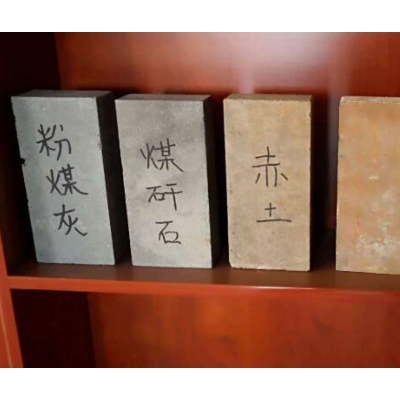 粉煤灰
煤矸石
赤土